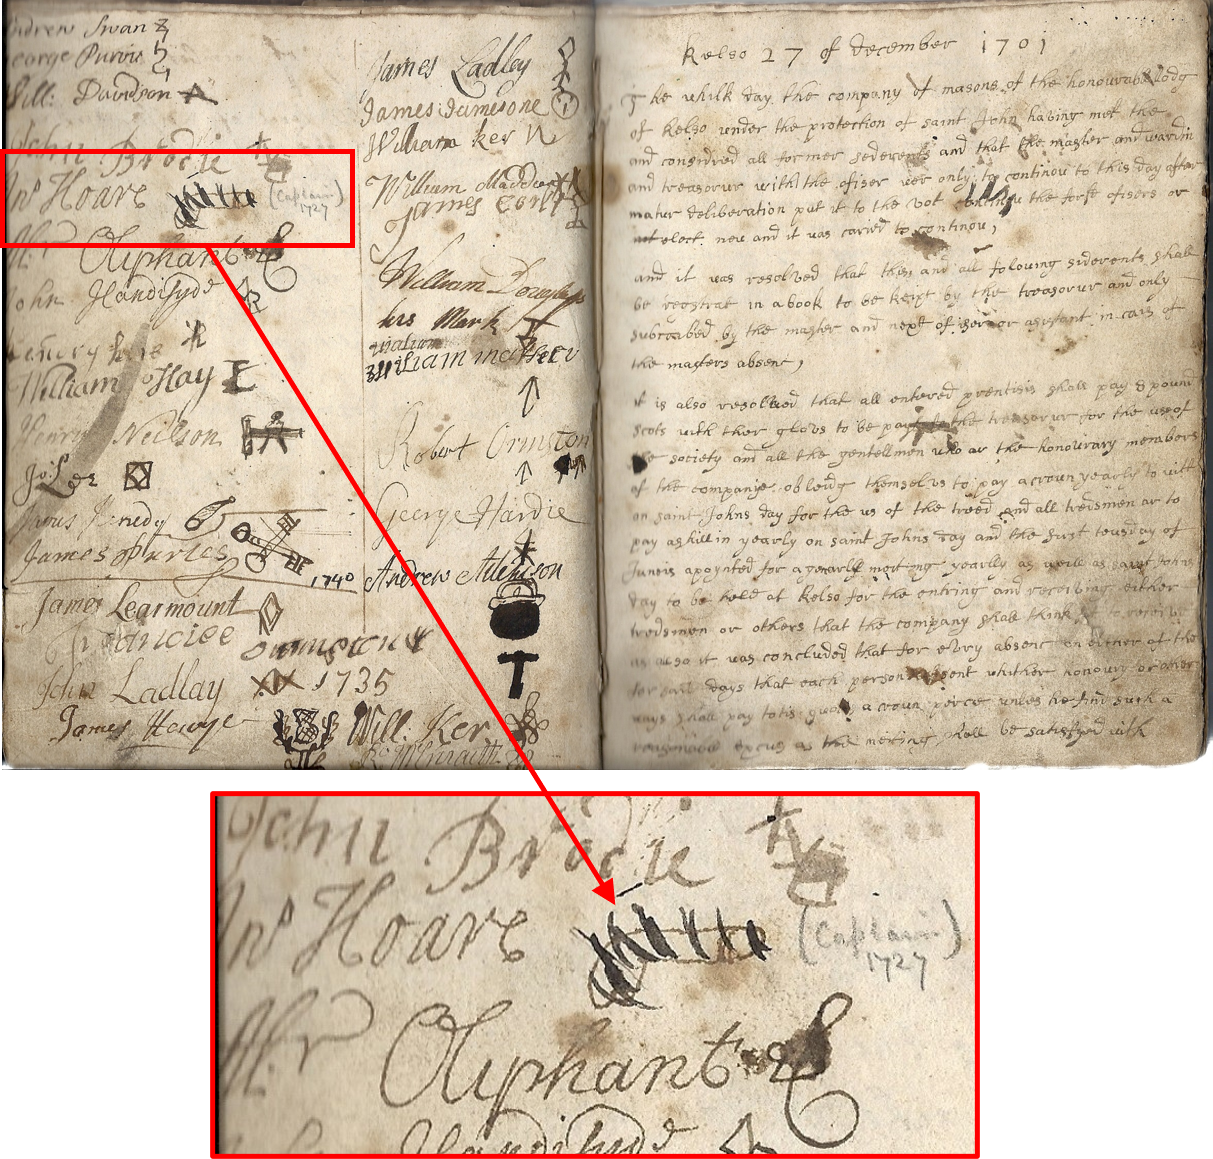 Andrew Swan
George Purvis
Will: Davidson
John Brodie
Jnº Hoare (Captain) 1727
Mr Oliphant
John Handisyde
William Hay
Henry Neilson
Jo: Ler
James Purves
1740
James Learmount
John Ladlay 1735
James Ladley
James Jamesone
William Ker
William
James
William
his Mark
William
Robert Ormston
George Hardie
Andrew Atchison
Will: Ker
Kelso 27 of december 1701
The whilk day the company of masons of the honourable lodg
of Kelso under the protection of saint John having met the
and considred all former sederents and that the master and wardin
and treasorur with the ofiser wer only to continou to this day after
matur deliberation put it to the vot continou the forst ofisers or
not elect new and it was caried to continou,
and it was resolved that this and all foloving siderents shall
be regstrat in a book to be keipt by the treasorur and only
subscrabed by the master and next ofiser or asistant in cais of
the masters absent,
it is also resolved that all entered prentisis shall pay 8 pound
scots with ther glovs to be payd to the treasorur for the use of
the society and all the gentellmen who ar the honourary members
of the companie obleidg themselvs to pay a croun yearly to witt
on saint Johns day for the us of the treed and all tredsmen ar to
pay a shillin yearly on saint Johns day and the first teusday of
Juneis apoynted for a yearly meeting yearly as weill as saint Johns
day to be held at Kelso for the entring and receiving either
tredsmen or others that the company shall think fit to receive
as also it was concluded that for every absent on either of the
for said days that each person absent whither honoury or other
ways shall pay to his a croun perice unles he find such a
reasonable excus as the meiting shall be satisfyed with
John Brodie
Jnº Hoare (Captain)
1727
Mr Oliphant
Handisyde